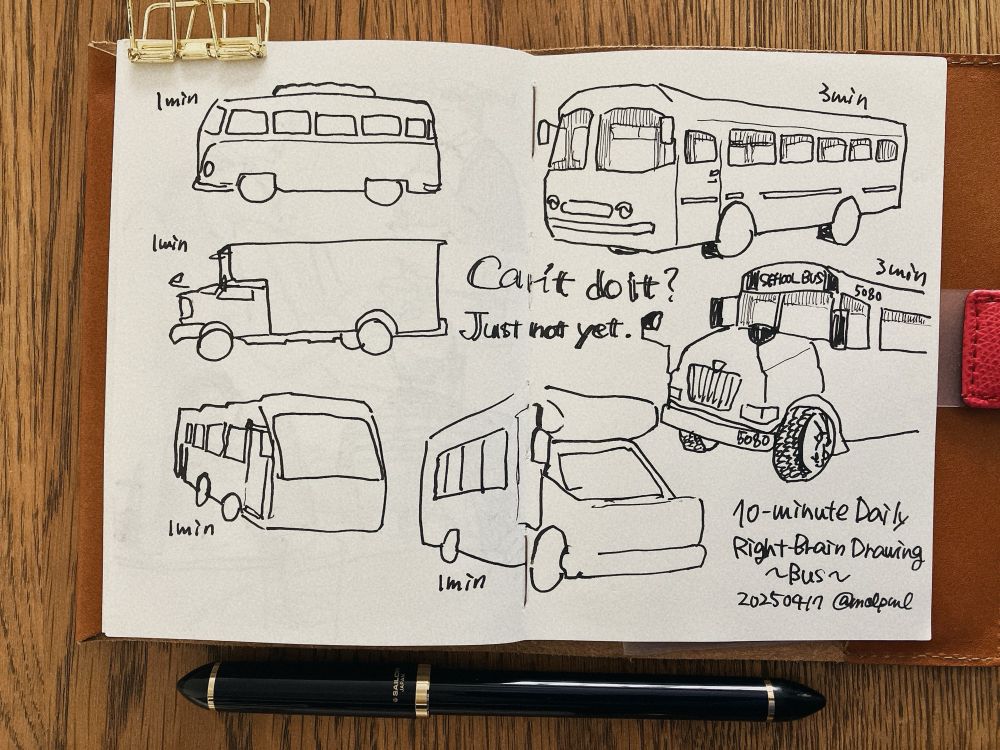 1min
3min
1min
Can't do it?
Just not yet.
3min
SCHOOL BUS
5080
5080
1min
1min
10-minute Daily
Right-Brain Drawing
~Bus~
20250417 @molpaul
SAILOR
JAPAN